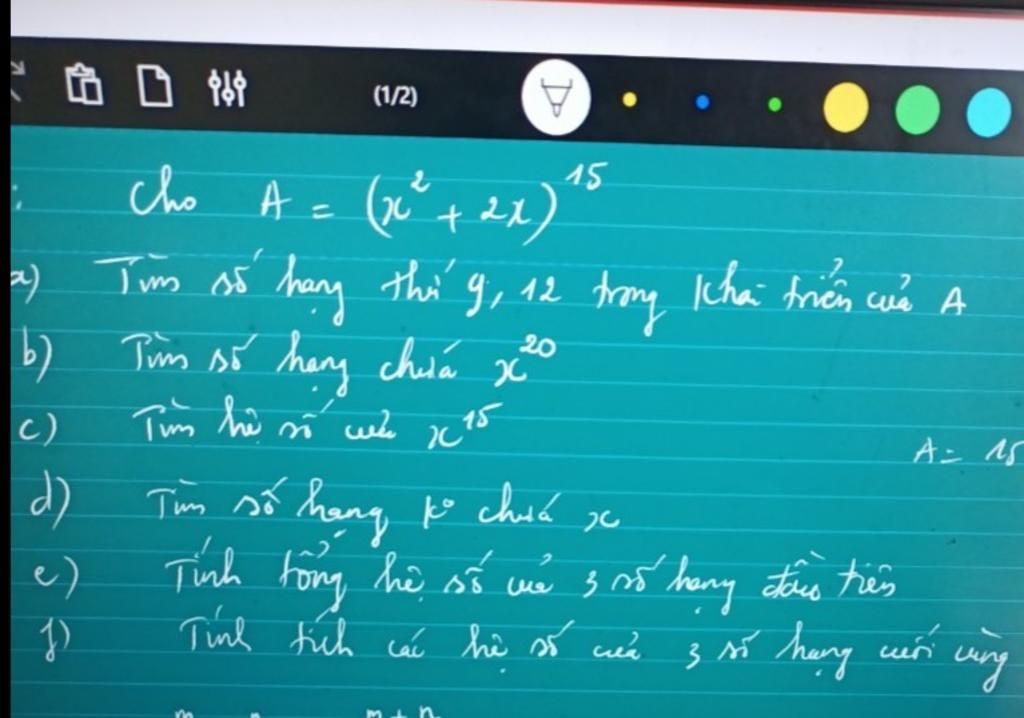 (1/2)
Cho A = (x² + 2x)¹⁵
a) Tìm số hạng thứ 9, 12 trong khai triển của A
b) Tìm số hạng chứa x²⁰
c) Tìm hệ số của x¹⁵
A = 15
d) Tìm số hạng ko chứa x
e) Tính tổng hệ số của 3 số hạng đầu tiên
f) Tính tích các hệ số của 3 số hạng cuối cùng
m n m+n